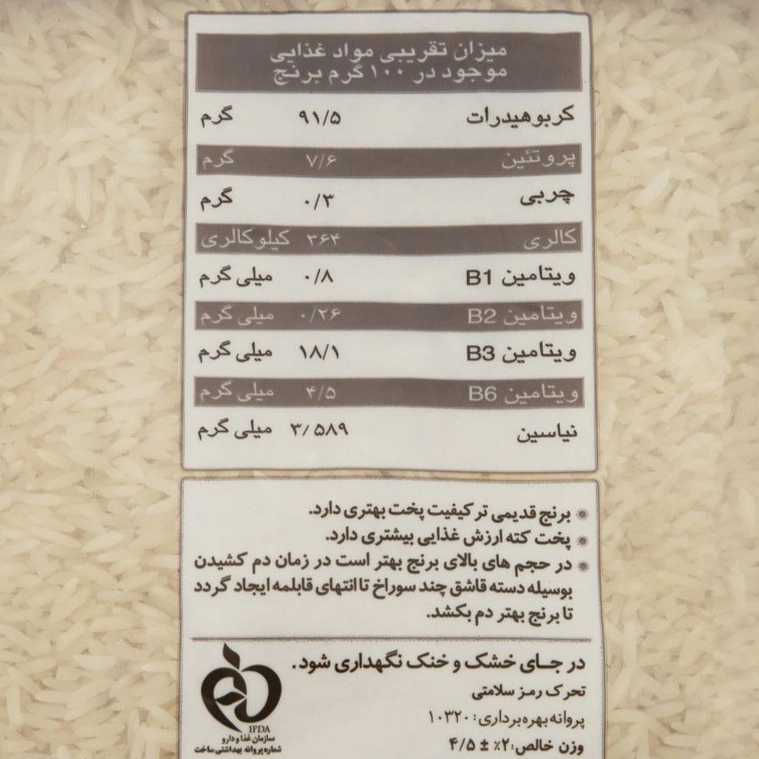 میزان تقریبی مواد غذایی
موجود در ۱۰۰ گرم برنج
کربوهیدرات ۹۱/۵ گرم
پروتئین ۷/۶ گرم
چربی ۰/۳ گرم
کالری ۳۶۴ کیلوکالری
ویتامین B1 ۰/۸ میلی گرم
ویتامین B2 ۰/۲۶ میلی گرم
ویتامین B3 ۱۸/۱ میلی گرم
ویتامین B6 ۴/۵ میلی گرم
نیاسین ۳/۵۸۹ میلی گرم
برنج قدیمی تر کیفیت پخت بهتری دارد.
پخت کته ارزش غذایی بیشتری دارد.
در حجم های بالای برنج بهتر است در زمان دم کشیدن
بوسیله دسته قاشق چند سوراخ تا انتهای قابلمه ایجاد گردد
تا برنج بهتر دم بکشد.
در جای خشک و خنک نگهداری شود.
تحرک رمز سلامتی
پروانه بهره برداری: ۱۰۳۲۰
وزن خالص: ۲٪ ± ۴/۵
IFDA
سازمان غذا و دارو
شماره پروانه بهداشتی ساخت